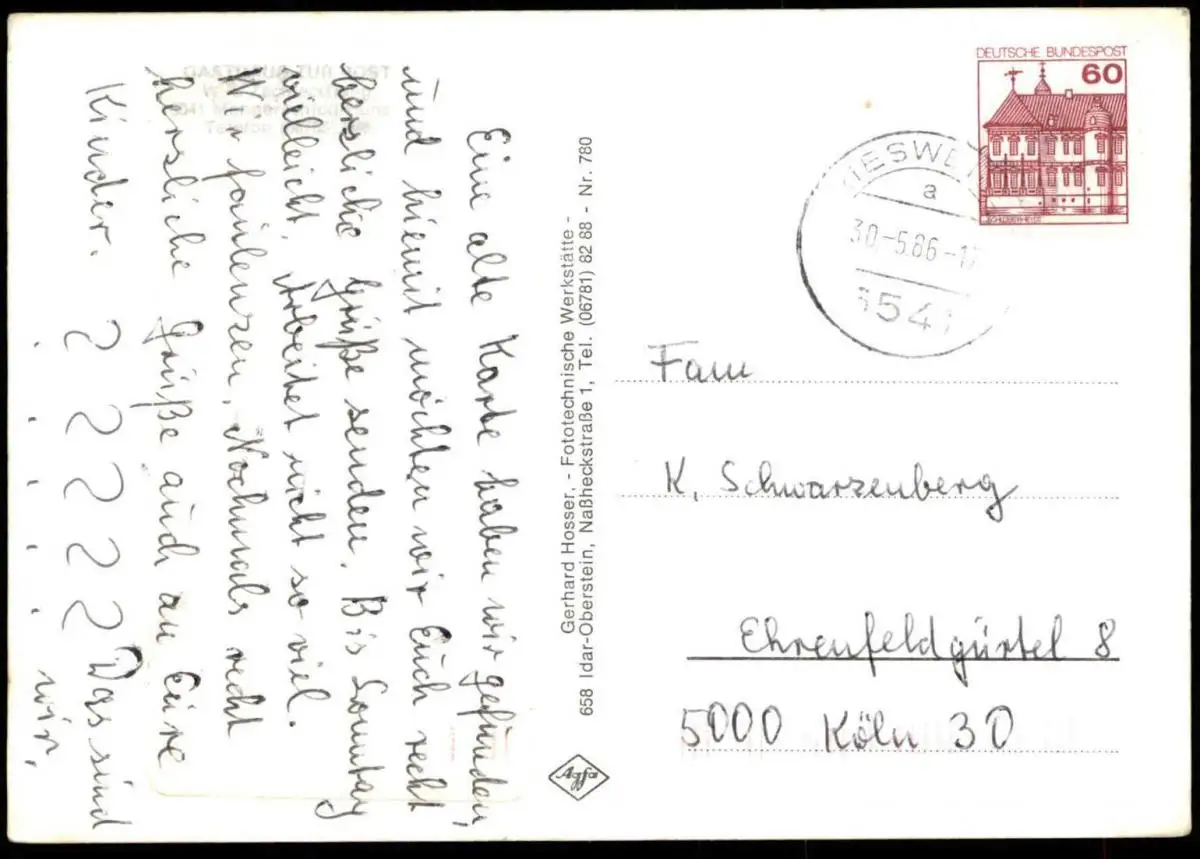 Eine alte Karte haben wir gefunden,
und hiemit möchten wir Euch recht
hersliche Grüße senden. Bis Sonntag
vielleicht. Arbeitet nicht so viel.
Wir faulenzen. Nochmals recht
hersliche Grüße auch an Eure
Kinder. ? ? ? ? ? Das sind
wir.
GASTHAUS ZUR POST
Gerhard Hosser, - Fototechnische Werkstätte -
658 Idar-Oberstein, Naßheckstraße 1, Tel. (06781) 82 88 - Nr. 780
Agfa
DEUTSCHE BUNDESPOST
60
SCHLOSS RHEYDT
a
30.-5.86-17
Fam
K. Schwarzenberg
Ehrenfeldgürtel 8
5000 Köln 30